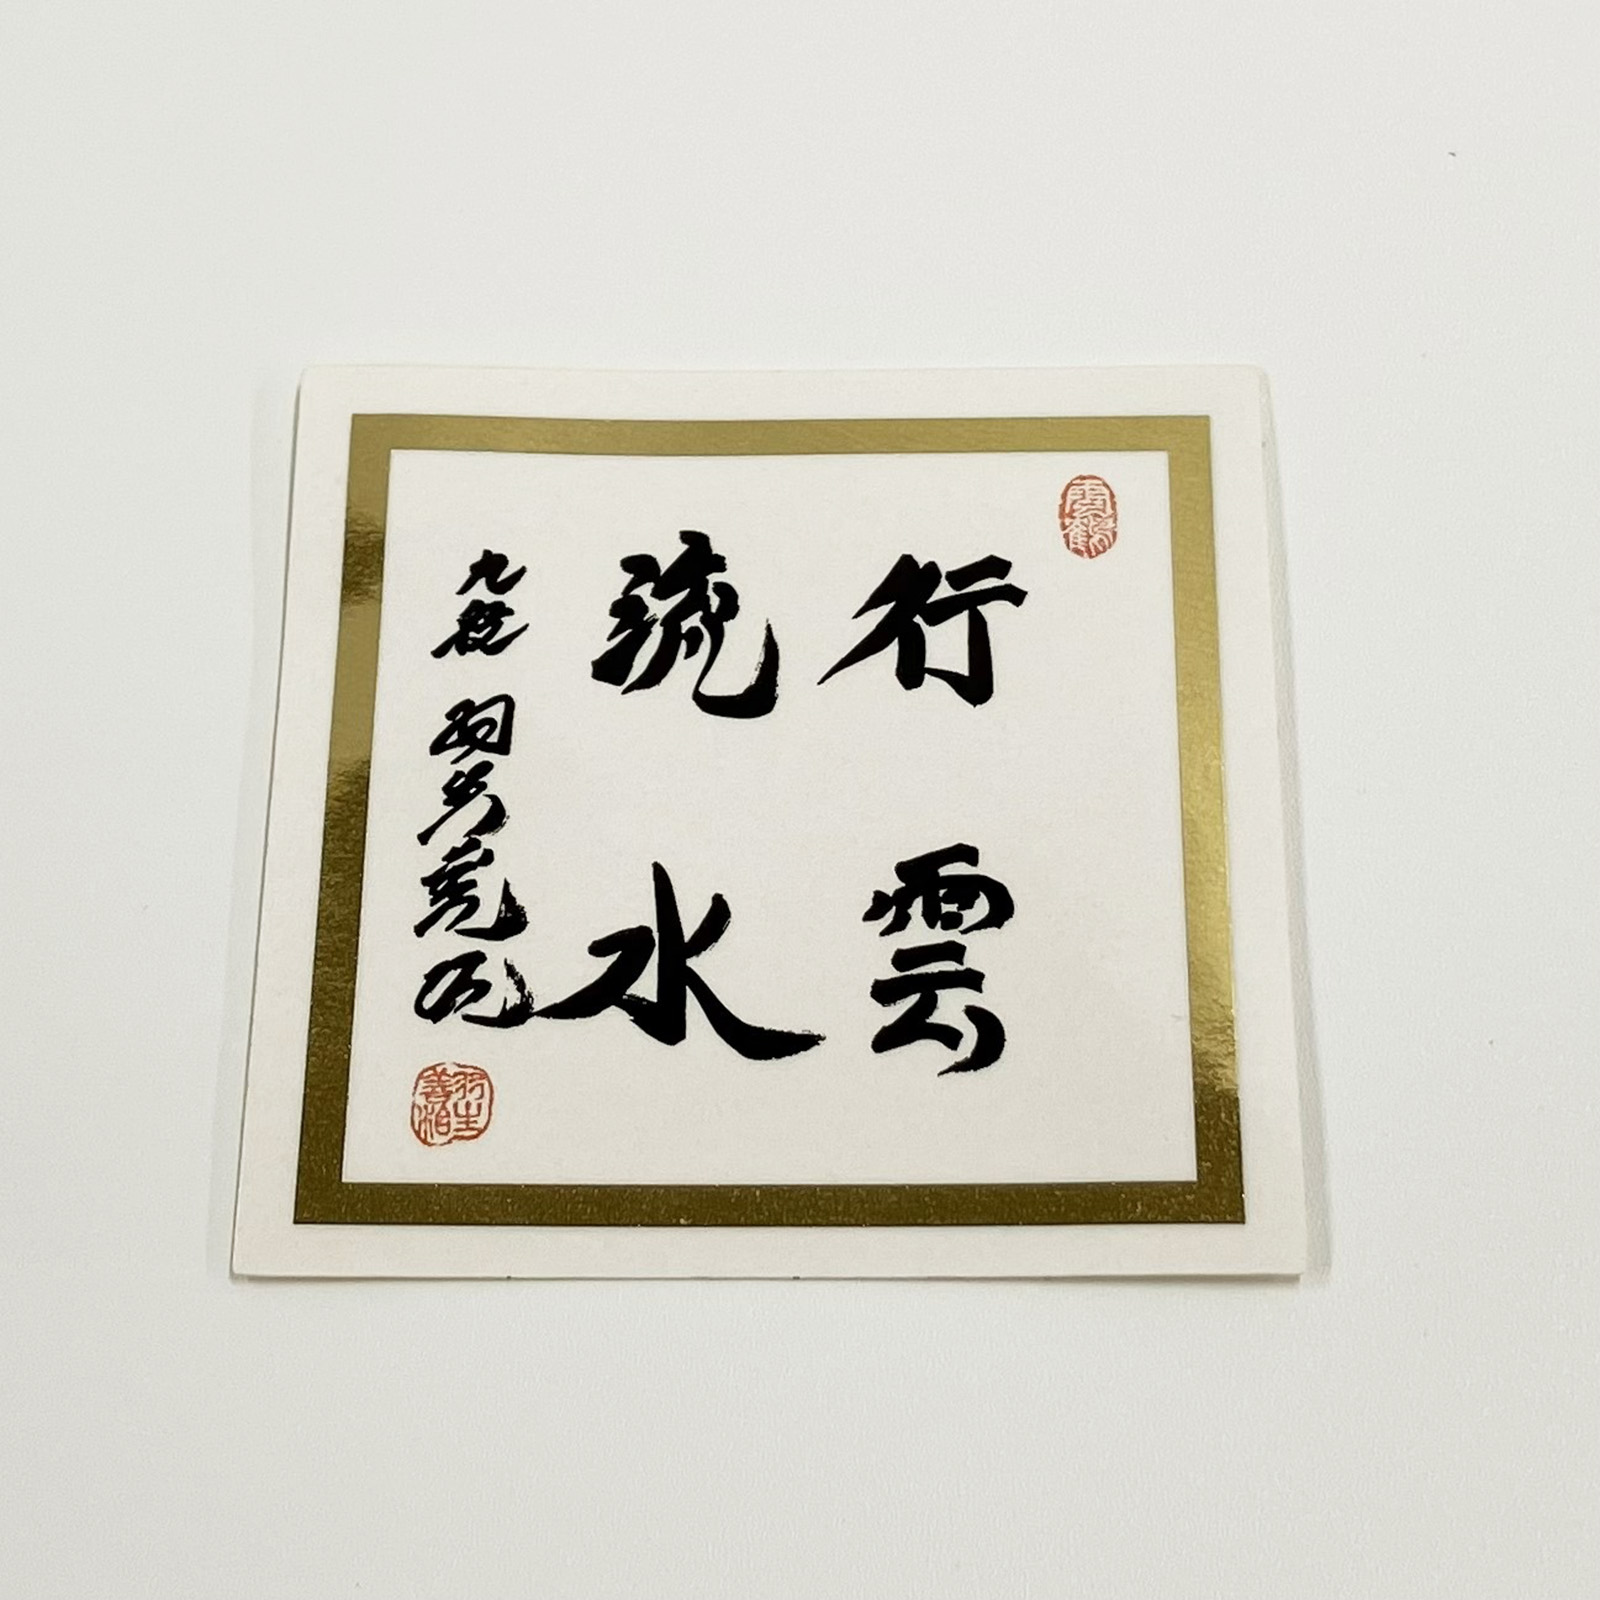 雲鶴
行雲
流水
九段 羽生善治
羽生善治